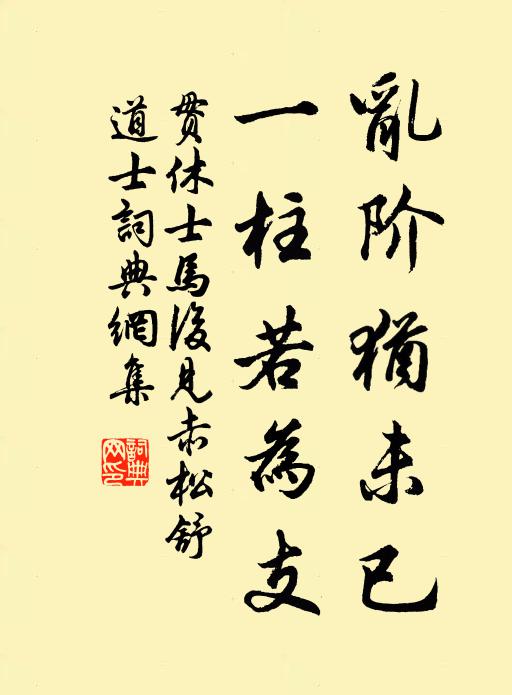 亂阶猶未已
一柱若為支
贯休士馬後見赤松舒
道士詞典網集
詞典网印